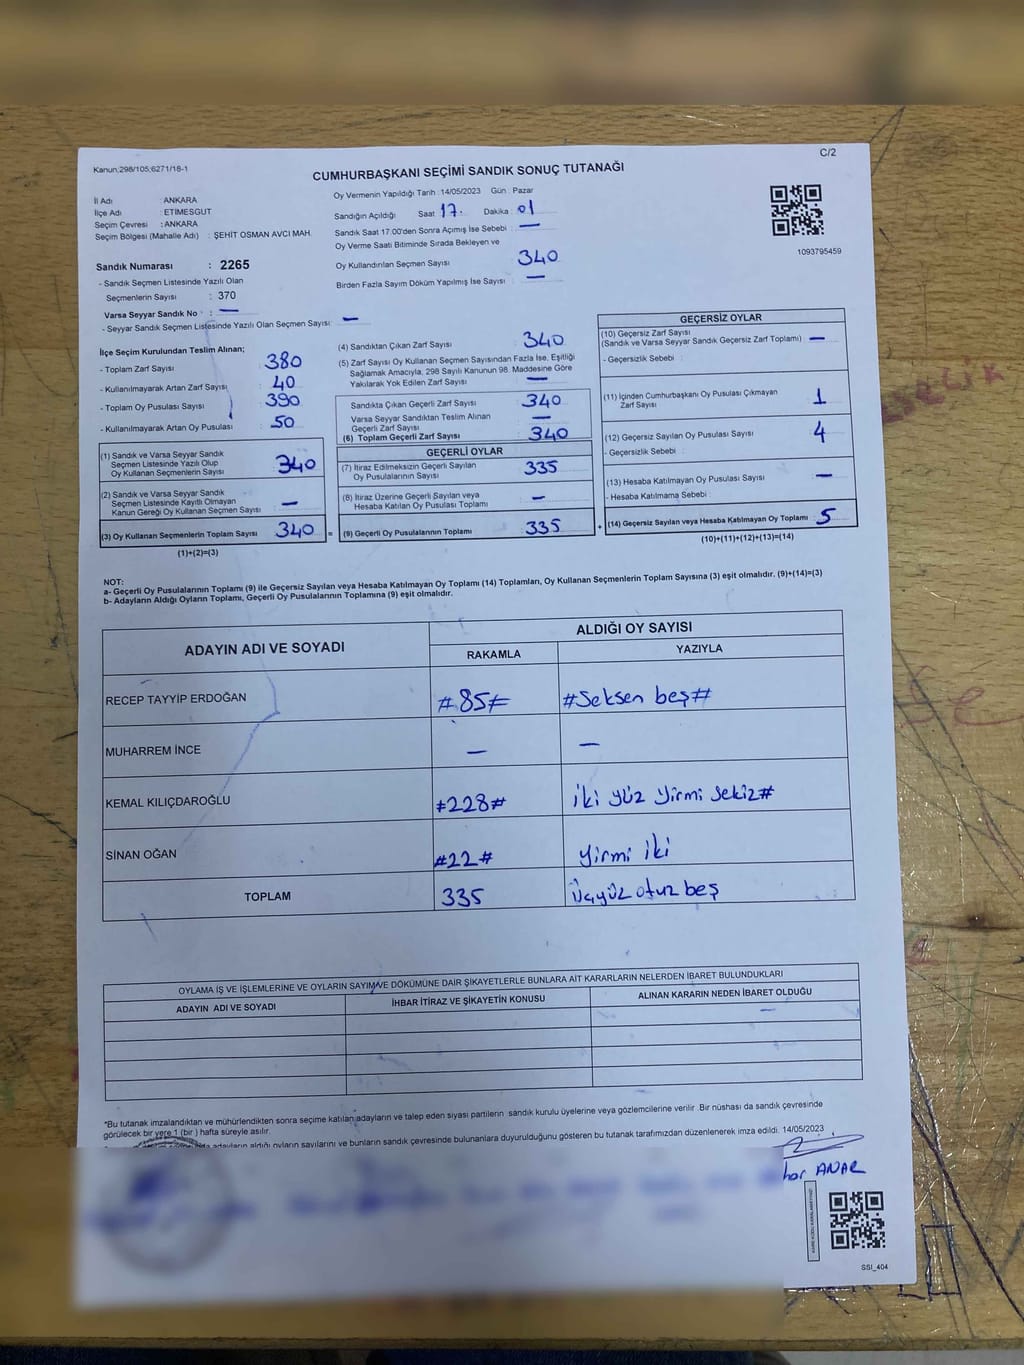 Kanun;298/105;6271/18-1
C/2
CUMHURBAŞKANI SEÇİMİ SANDIK SONUÇ TUTANAĞI
İl Adı : ANKARA
İlçe Adı : ETİMESGUT
Seçim Çevresi : ANKARA
Seçim Bölgesi (Mahalle Adı) : ŞEHİT OSMAN AVCI MAH.
Oy Vermenin Yapıldığı Tarih : 14/05/2023 Gün : Pazar
Sandığın Açıldığı Saat : 17. Dakika : 01
Sandık Saat 17.00'den Sonra Açımış İse Sebebi : —
Oy Verme Saati Bitiminde Sırada Bekleyen ve
Oy Kullandırılan Seçmen Sayısı 340
Birden Fazla Sayım Döküm Yapılmış İse Sayısı : —
1093795459
Sandık Numarası : 2265
- Sandık Seçmen Listesinde Yazılı Olan
Seçmenlerin Sayısı : 370
Varsa Seyyar Sandık No : —
- Seyyar Sandık Seçmen Listesinde Yazılı Olan Seçmen Sayısı: —
İlçe Seçim Kurulundan Teslim Alınan;
- Toplam Zarf Sayısı : 380
- Kullanılmayarak Artan Zarf Sayısı : 40
- Toplam Oy Pusulası Sayısı : 390
- Kullanılmayarak Artan Oy Pusulası : 50
(1) Sandık ve Varsa Seyyar Sandık
Seçmen Listesinde Yazılı Olup
Oy Kullanan Seçmenlerin Sayısı : 340
(2) Sandık ve Varsa Seyyar Sandık
Seçmen Listesinde Kayıtlı Olmayan
Kanun Gereği Oy Kullanan Seçmen Sayısı : —
(3) Oy Kullanan Seçmenlerin Toplam Sayısı : 340
(1)+(2)=(3)
(4) Sandıktan Çıkan Zarf Sayısı : 340
(5) Zarf Sayısı Oy Kullanan Seçmen Sayısından Fazla İse, Eşitliği
Sağlamak Amacıyla, 298 Sayılı Kanunun 98. Maddesine Göre
Yakılarak Yok Edilen Zarf Sayısı : —
Sandıkta Çıkan Geçerli Zarf Sayısı : 340
Varsa Seyyar Sandıktan Teslim Alınan
Geçerli Zarf Sayısı : —
(6) Toplam Geçerli Zarf Sayısı : 340
GEÇERLİ OYLAR
(7) İtiraz Edilmeksizin Geçerli Sayılan
Oy Pusulalarının Sayısı : 335
(8) İtiraz Üzerine Geçerli Sayılan veya
Hesaba Katılan Oy Pusulası Toplamı : —
= (9) Geçerli Oy Pusulalarının Toplamı : 335
GEÇERSİZ OYLAR
(10) Geçersiz Zarf Sayısı
(Sandık ve Varsa Seyyar Sandık Geçersiz Zarf Toplamı) : —
- Geçersizlik Sebebi :
(11) İçinden Cumhurbaşkanı Oy Pusulası Çıkmayan
Zarf Sayısı : 1
(12) Geçersiz Sayılan Oy Pusulası Sayısı : 4
- Geçersizlik Sebebi :
(13) Hesaba Katılmayan Oy Pusulası Sayısı : —
- Hesaba Katılmama Sebebi :
+ (14) Geçersiz Sayılan veya Hesaba Katılmayan Oy Toplamı : 5
(10)+(11)+(12)+(13)=(14)
NOT:
a- Geçerli Oy Pusulalarının Toplamı (9) ile Geçersiz Sayılan veya Hesaba Katılmayan Oy Toplamı (14) Toplamları, Oy Kullanan Seçmenlerin Toplam Sayısına (3) eşit olmalıdır. (9)+(14)=(3)
b- Adayların Aldığı Oyların Toplamı, Geçerli Oy Pusulalarının Toplamına (9) eşit olmalıdır.
ADAYIN ADI VE SOYADI ALDIĞI OY SAYISI
RAKAMLA YAZIYLA
RECEP TAYYİP ERDOĞAN #85# #Seksen beş#
MUHARREM İNCE — —
KEMAL KILIÇDAROĞLU #228# iki yüz yirmi sekiz#
SİNAN OĞAN #22# yirmi iki
TOPLAM 335 Üçyüz otuz beş
OYLAMA İŞ VE İŞLEMLERİNE VE OYLARIN SAYIM VE DÖKÜMÜNE DAİR ŞİKAYETLERLE BUNLARA AİT KARARLARIN NELERDEN İBARET BULUNDUKLARI
ADAYIN ADI VE SOYADI İHBAR İTİRAZ VE ŞİKAYETİN KONUSU ALINAN KARARIN NEDEN İBARET OLDUĞU
—
*Bu tutanak imzalandıktan ve mühürlendikten sonra seçime katılan adayların ve talep eden siyasi partilerin sandık kurulu üyelerine veya gözlemcilerine verilir .Bir nüshası da sandık çevresinde
görülecek bir yere 1 (bir ) hafta süreyle asılır.
adayların aldığı oyların sayılarını ve bunların sandık çevresinde bulunanlara duyurulduğunu gösteren bu tutanak tarafımızdan düzenlenerek imza edildi. 14/05/2023
ANAR
SSI_404